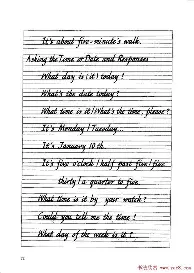 It's about five-minute's walk.
Asking the Time or Date and Responses
What day is (it) today?
What's the date today?
What time is it / What's the time, please?
It's Monday / Tuesday...
It's January 10 th.
It's five o'clock / half past five / five
thirty / a quarter to five.
What time is it by your watch?
Could you tell me the time?
What day of the week is it?